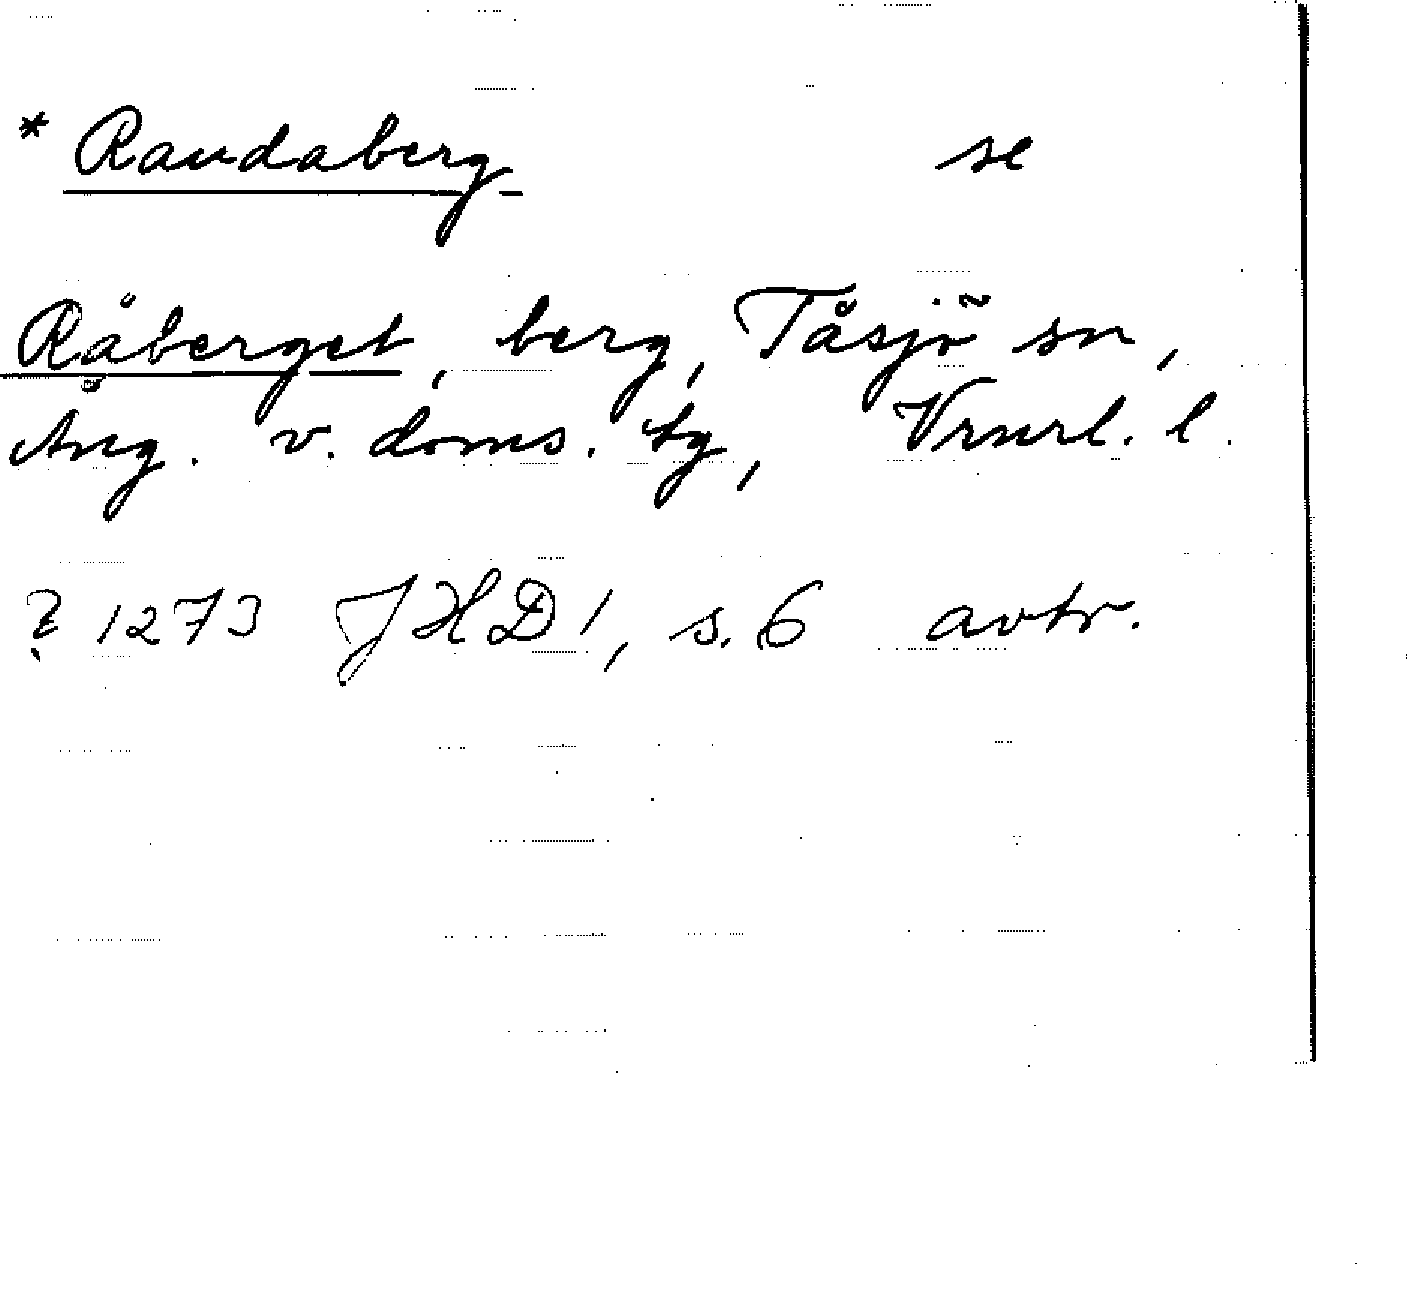 * Raudaberg se
Råberget, berg, Tåsjö sn,
Ång. v. doms. tg, Vrnrl. l.
? 1273 JHD 1, s. 6 avtr.